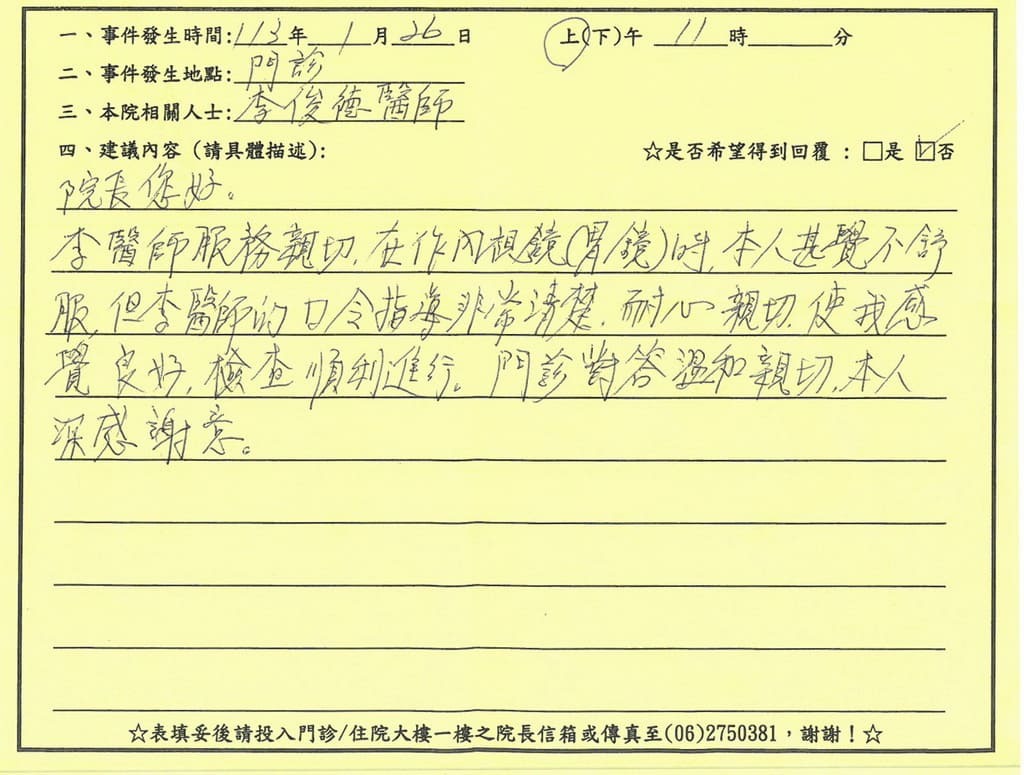 一、事件發生時間:113年 1月26日 上(下)午 11時 分
二、事件發生地點: 門診
三、本院相關人士: 李俊德醫師
四、建議內容(請具體描述): ☆是否希望得到回覆：□是 ☑否
院長您好。
李醫師服務親切,在作內視鏡(胃鏡)時,本人甚覺不舒
服,但李醫師的口令指導非常清楚,耐心親切,使我感
覺良好,檢查順利進行。門診對答溫和親切,本人
深感謝意。
☆表填妥後請投入門診/住院大樓一樓之院長信箱或傳真至(06)2750381，謝謝！☆